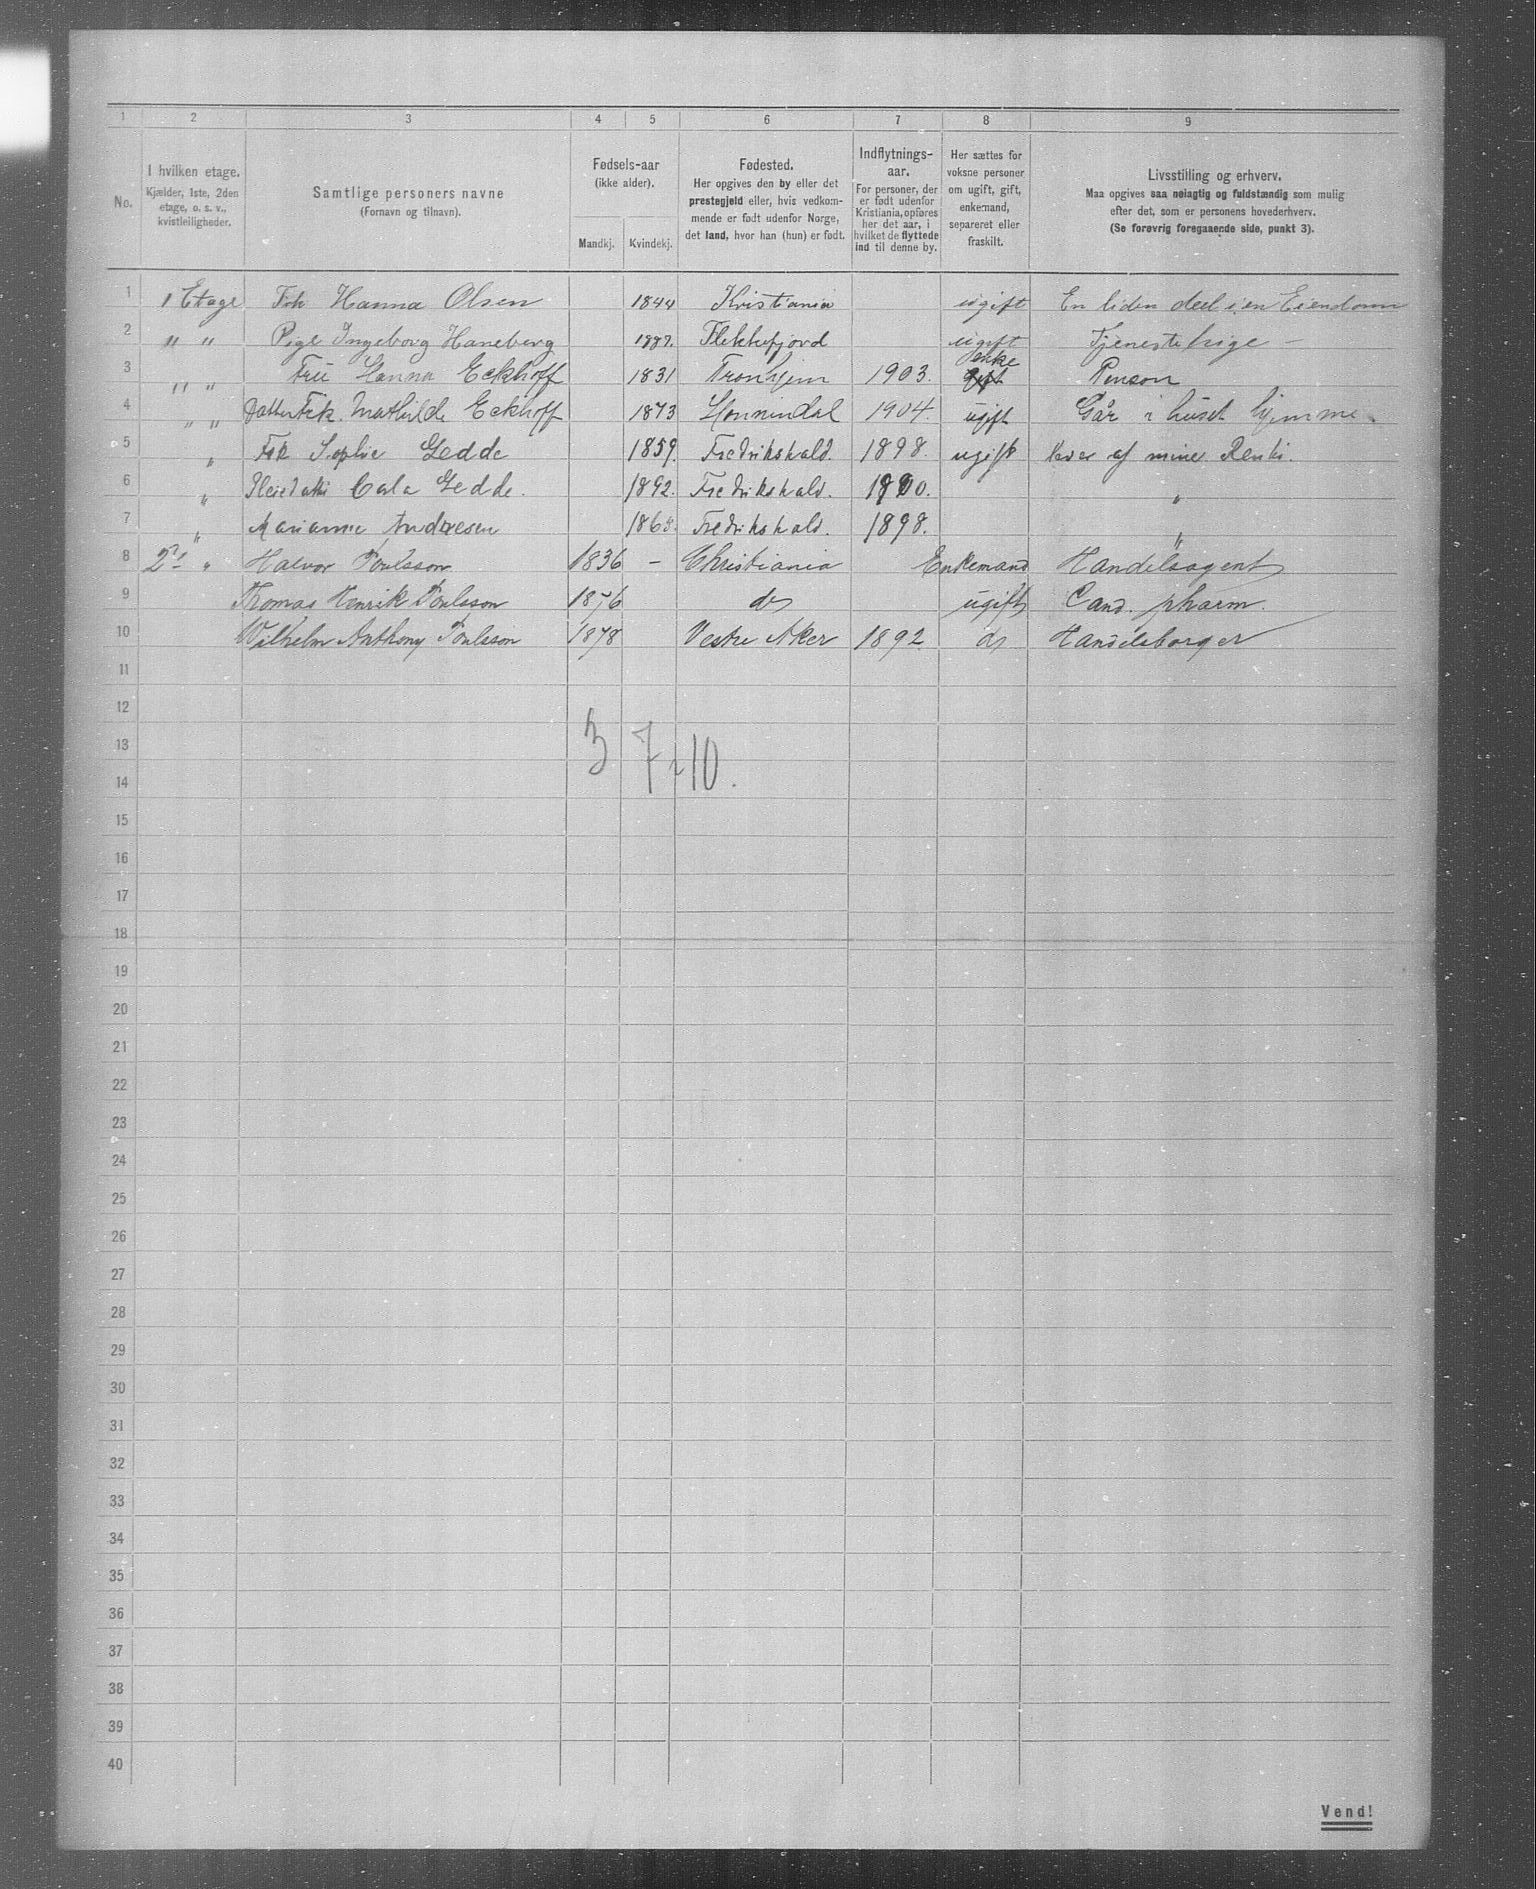 1 2 3 4 5 6 7 8 9
No.
I hvilken etage.
Kjælder, 1ste, 2den
etage, o. s. v.,
kvistleiligheder.
Samtlige personers navne
(Fornavn og tilnavn).
Fødsels-aar
(ikke alder).
Mandkj. Kvindekj.
Fødested.
Her opgives den by eller det
prestegjeld eller, hvis vedkom-
mende er født udenfor Norge,
det land, hvor han (hun) er født.
Indflytnings-
aar.
For personer, der
er født udenfor
Kristiania, opføres
her det aar, i
hvilket de flyttede
ind til denne by.
Her sættes for
voksne personer
om ugift, gift,
enkemand,
separeret eller
fraskilt.
Livsstilling og erhverv.
Maa opgives saa nøiagtig og fuldstændig som mulig
efter det, som er personens hovederhverv.
(Se forøvrig foregaaende side, punkt 3).
1 1 Etage Frk Hanna Olsen 1844 Kristiania ugift En liden deel i en Eiendom
2 " " Pige Ingeborg Haneberg 1887. Flekkefjord ugift Tjenestepige –
3 " " Frü Hanna Eckhoff 1831 Tronhjem 1903. enke gift Penson
4 " " Datter Frk. Mathilde Eckhoff 1873 Hornindal 1904. ugift Går i huset hjemme.
5 " Frk Sophie Gedde 1859. Fredrikshald. 1898. ugift lever af mine Renter.
6 " Pleiedatter Carla Gedde. 1892. Fredrikshald. 1900. "
7 " Marianne Andresen 1865. Fredrikshald. 1898. "
8 2' " Halvor Poulsson 1836 – Christiania Enkemand Handelsagent
9 Thomas Henrik Poulsson 1876 do ugift Cand. pharm.
10 Wilhelm Anthony Poulsson 1878 Vestre Aker 1892 do Handelsborger
11
12
13 3 7 10.
14
15
16
17
18
19
20
21
22
23
24
25
26
27
28
29
30
31
32
33
34
35
36
37
38
39
40
Vend!